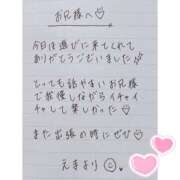 お兄様へ♡
今日は遊びに来てくれて
ありがとうございました
とっても話やすいお兄様
で我慢しながらイチャイ
チャして楽しかった
また出張の時にぜひ♡
えまより☺